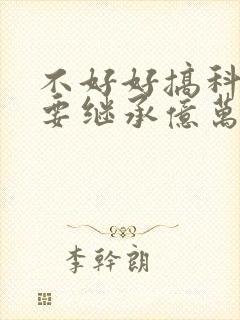 不好好搞科
要继承億萬
李幹朗